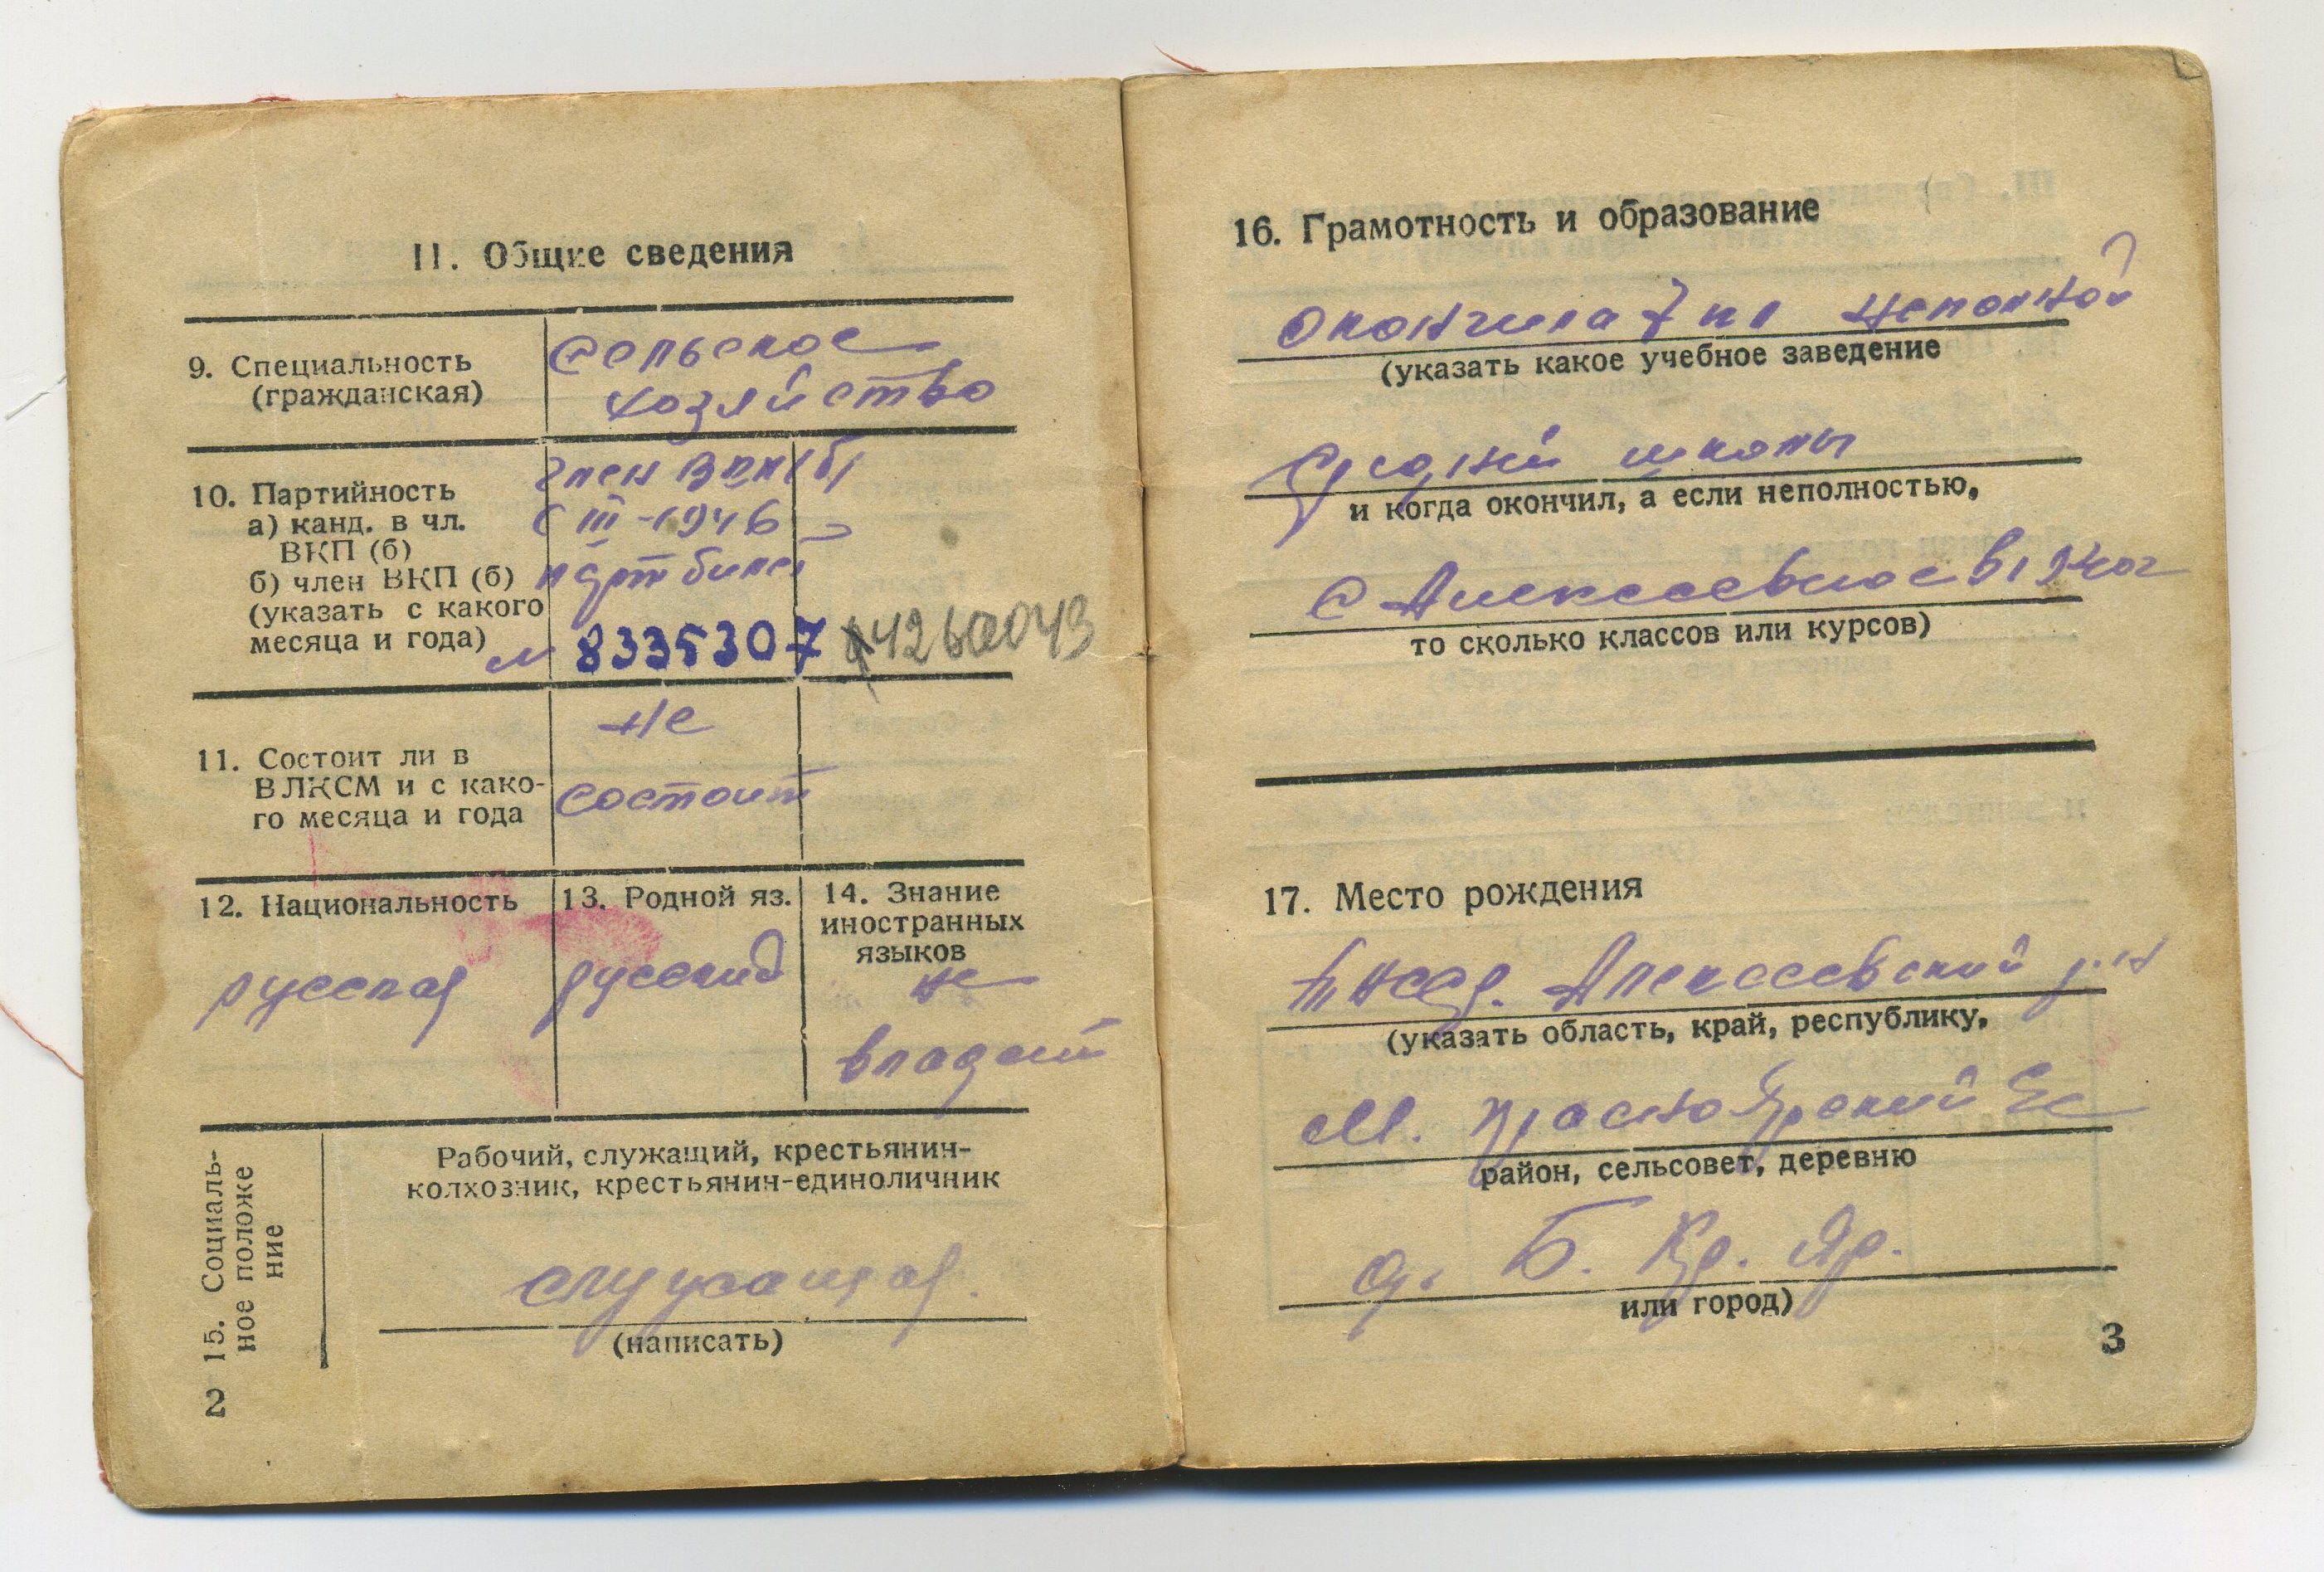 II. Общие сведения
9. Специальность
(гражданская)
Сельское
хозяйство
10. Партийность
а) канд. в чл.
ВКП (б)
б) член ВКП (б)
(указать с какого
месяца и года)
член ВКП(б)
с III-1946
партбилет
№ 8335307
4260043
11. Состоит ли в
ВЛКСМ и с како-
го месяца и года
не
состоит
12. Национальность
русская
13. Родной яз.
русский
14. Знание
иностранных
языков
не
владеет
15. Социаль-
ное положе
ние
Рабочий, служащий, крестьянин-
колхозник, крестьянин-единоличник
служащая.
(написать)
2
16. Грамотность и образование
Окончила 7 кл неполной
(указать какое учебное заведение
средней школы
и когда окончил, а если неполностью,
с Алексеевское в
то сколько классов или курсов)
17. Место рождения
ТАССР. Алексеевский р-н
(указать область, край, республику,
М. Красно Ярский с/с
район, сельсовет, деревню
д. Б. Кр. Яр.
или город)
3